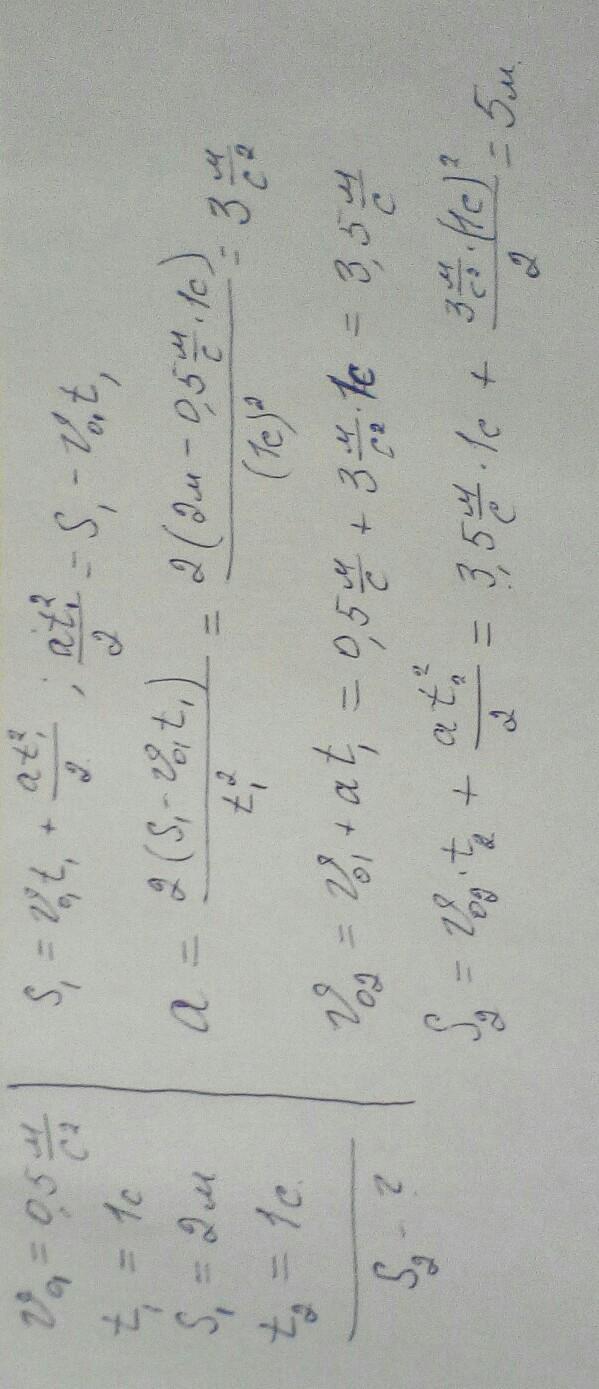 v₀₁ = 0,5 м/с²
t₁ = 1с
S₁ = 2м
t₂ = 1с
S₂ - ?
S₁ = v₀₁t₁ + at₁²/2 ; at₁²/2 = S₁ - v₀₁t₁
a = 2(S₁ - v₀₁t₁)/t₁² = 2(2м - 0,5 м/с · 1с)/(1с)² = 3 м/с²
v₀₂ = v₀₁ + at₁ = 0,5 м/с + 3 м/с² · 1с = 3,5 м/с
S₂ = v₀₂ · t₂ + at₂²/2 = 3,5 м/с · 1с + 3 м/с² · (1с)²/2 = 5м